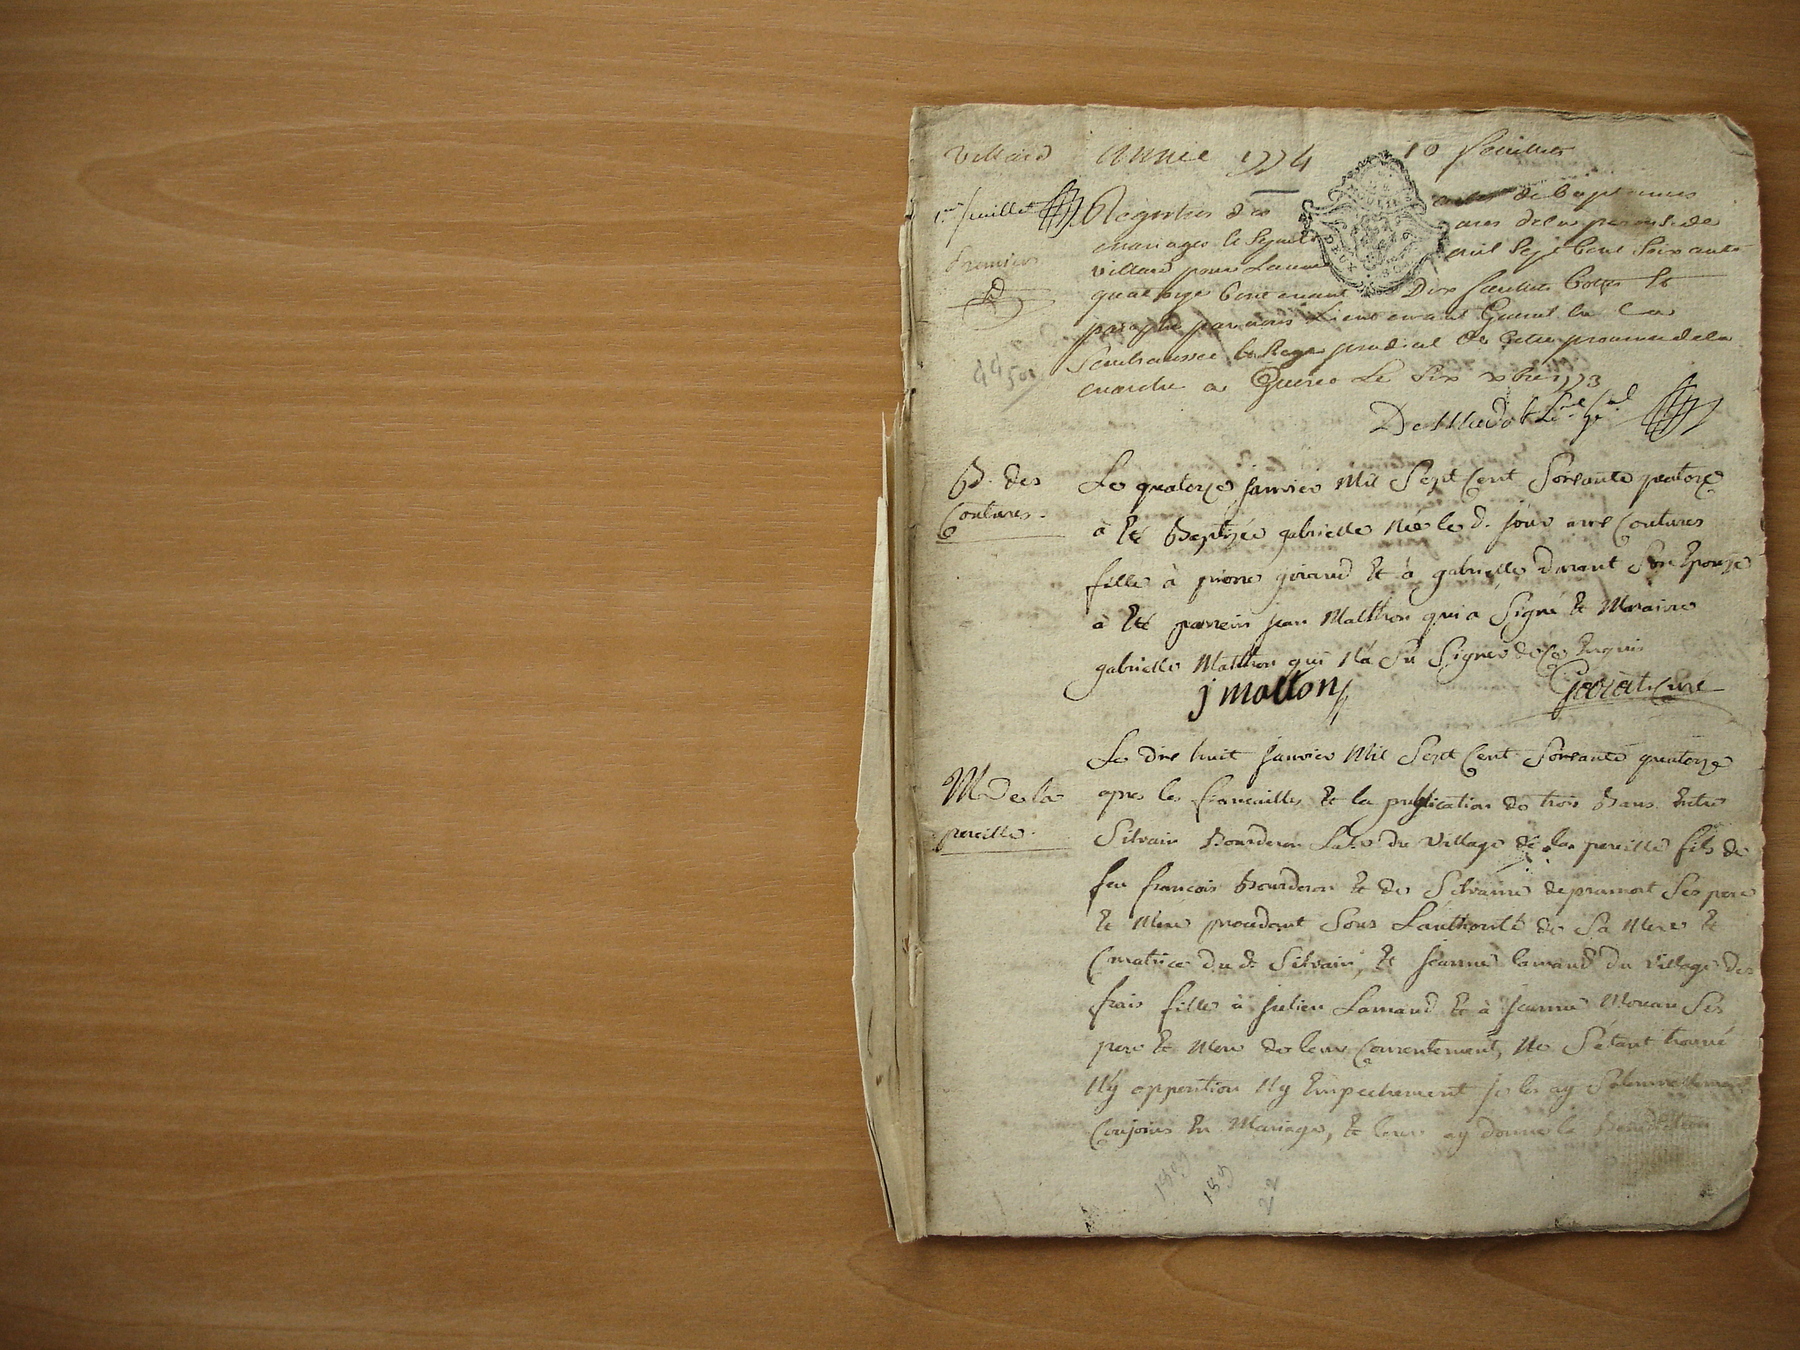 Villard Année 1774 10 feuillets
1er feuillet Registres des actes de baptemes
mariages
villard pour de la paroisse de
mil sept Cent soixante
quatorze Contenant Dix feuillets Cottés Et
paraphé par nous Lieutenant General En La
Senechaussée Et siege presidial De cette province de la
marche a Gueret Le Six xbre 1773
premier
B. des
Coutures.
Le quatorze janvier Mil Sept Cent Soixante quatorze
à Eté Baptizée gabrielle Née le d. jour aux Coutures
fille à pierre giraud Et à gabrielle durant Son Epouze
à Eté parrein jean Matthon qui a Signé Et Maraine
gabrielle Matthon qui N'a Su Signer de Ce Enquis
j matton
Curé
M. de la
pereille.
Le dix huit janvier Mil Sept Cent Soixante quatorze
apres les fiancailles Et la publication de trois Bans Entre
Silvain Bourderon Labr. du Village de la pereille fils de
feu françois Bourderon Et de Silvaine ses pere
Et Mere procedant Sous L'authorité de Sa Mere Et
Curatrice du d. Silvain, Et jeanne lamaud du Village des
frais fille à julien Lamaud Et à jeanne Ses
pere Et Mere de leur Consentement, Ne S'étant trouvé
N'y opposition N'y Empechement je les ay Solennellement
Conjoins En Mariage, Et leur ay donné la Benediction
22